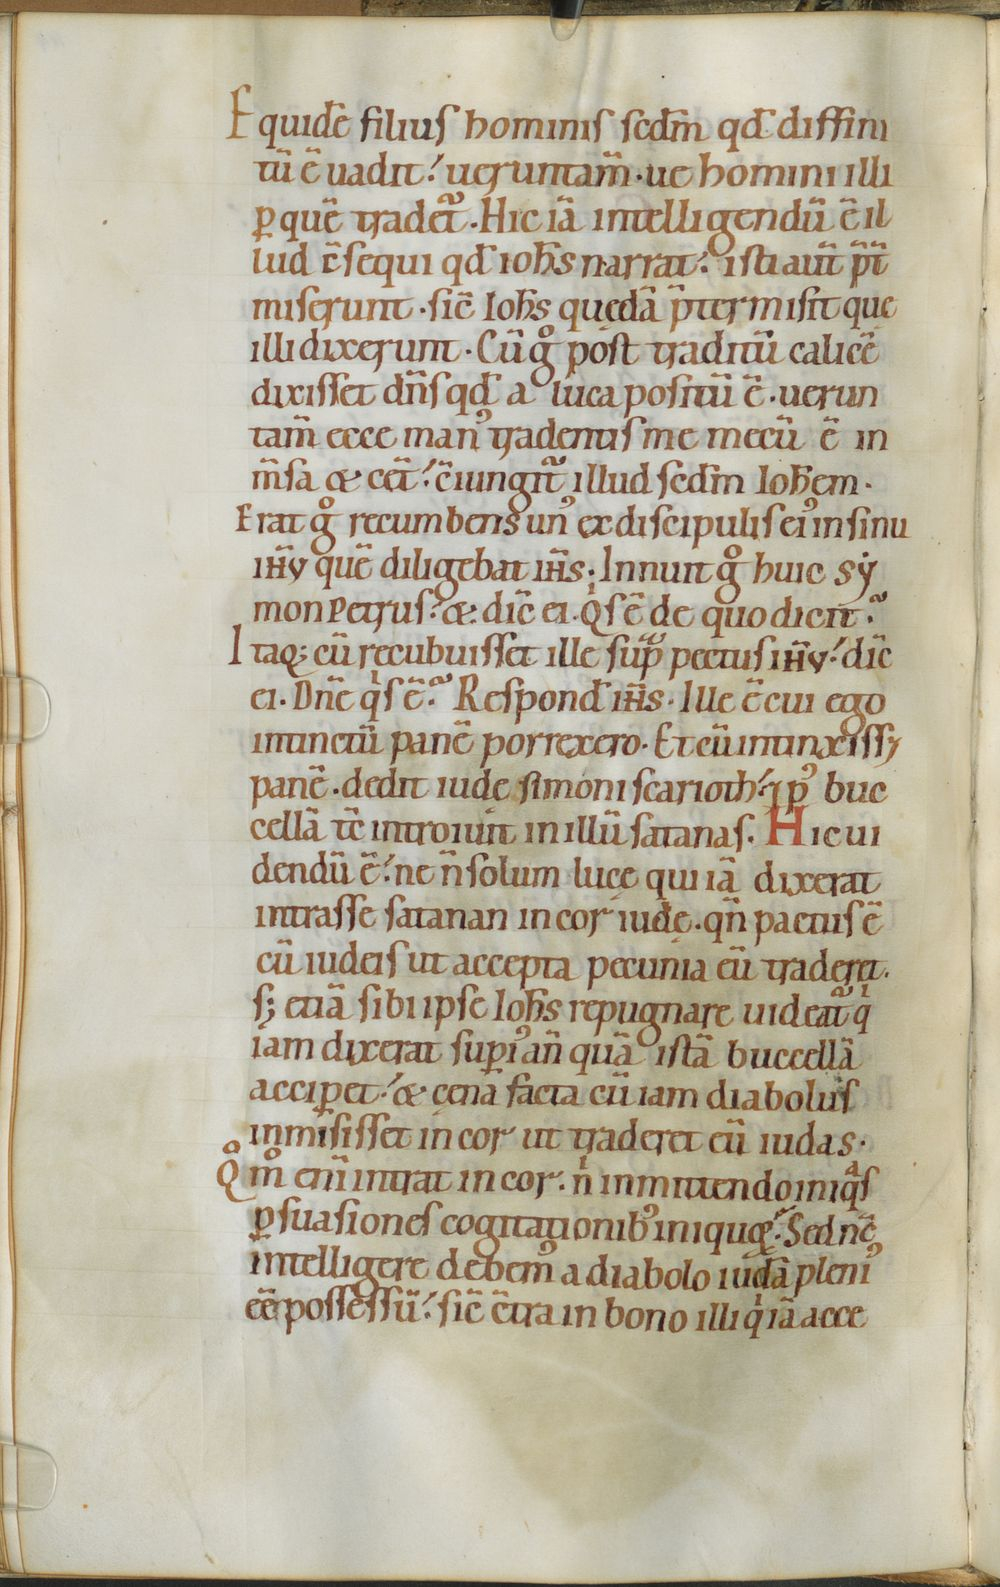 Equidē filius hominis scd̄m qđ diffini
tū ē uadit: ueruntam̄. ue homini illi
ꝑ quē tradet᷑. Hic iā intelligendū ē il
lud c̄sequi qđ ioħs narrat: isti aut̄ p̄t
miserunt. sic̄ Ioħs quędā p̄termisit que
illi dixerunt. Cū gͦ post traditū calicē
dixisset dn̄s qđ a luca positū ē. uerun
tam̄ ecce man᾽ tradentis me mecū ē in
m̄sa & cet̄: c̄iungit᷑ illud scd̄m Ioħem.
Erat gͦ recumbens un᾽ ex discipulis ei᾽ in sinu
iħ̄v quē diligebat iħ̄s. Innuit gͦ huic sẏ
mon Petrus: & dic̄ ei. Qͥs ē de quo dicit?
Itaq; cū recubuisset ille sup̄ pectus iħ̄v: dic̄
ei. Dn̄e qͥs ē? Respond̄ iħ̄s. Ille ē cui ego
intinctū panē porrexero. Et cū intinxiss;
panē. dedit iudę simoni scarioth: ⁊ p᾽ buc
cellā tc̄ introiuit in illū satanas. Hic ui
dendū ē: ne n̄ solum lucę qui iā dixerat
intrasse satanan in cor iudę. qn̄ pactus ē
cū iudeis ut accepta pecunia eū traderet.
s; etiā sibi ipse Ioħs repugnare uideat᷑ qͥ
iam dixerat supi᾽ an̄ quā istā buccellā
acciꝑet: & cęna facta cū iam diabolus
inmisisset in cor ut traderet eū iudas.
Qͦm̊ eni᷑ intrat in cor. n̄ inmittendo iniqͣs
ꝑsuasiones cogitationib᾽ iniquoꝝ? Sed nc̄
intelligere debem᾽ a diabolo iudā pleni᾽
eē possessū: sic̄ c̄tra in bono illi qͥ iā acce